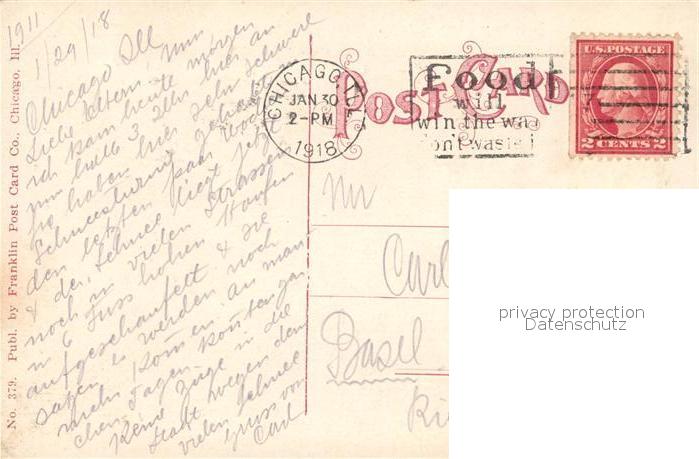 1911
1/29/18
Chicago Ill
Liebe Eltern, nun
ich kam heute morgen
um halb 3 Uhr hier an
sie haben hier sehr schwere
Schneesturm gehabt
den letzten paar Wochen
& der Schnee liegt jetzt
noch in vielen Strassen
in 6 Fuss hohen Haufen
aufgeschaufelt & sie
sagen es werden noch
mehr kommen. An man
chen Tagen konnten gar
keine Züge in die
Stadt wegen dem
vielen Schnee
Gruss von
Carl
No. 379. Publ. by Franklin Post Card Co., Chicago, Ill.
POST CARD
CHICAGO, ILL.
JAN 30
2-PM
1918
Food
will
win the wa
on't waste i
U.S. POSTAGE
2 CENTS 2
Mr
Carl
Basel
Ri
privacy protection
Datenschutz